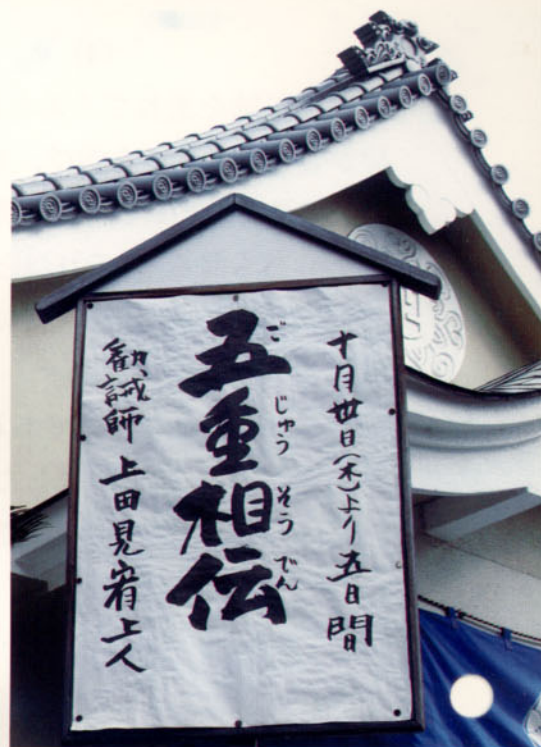 十月卅日(木)より五日間
五重相伝
ごじゅうそうでん
勧誡師 上田見宥上人